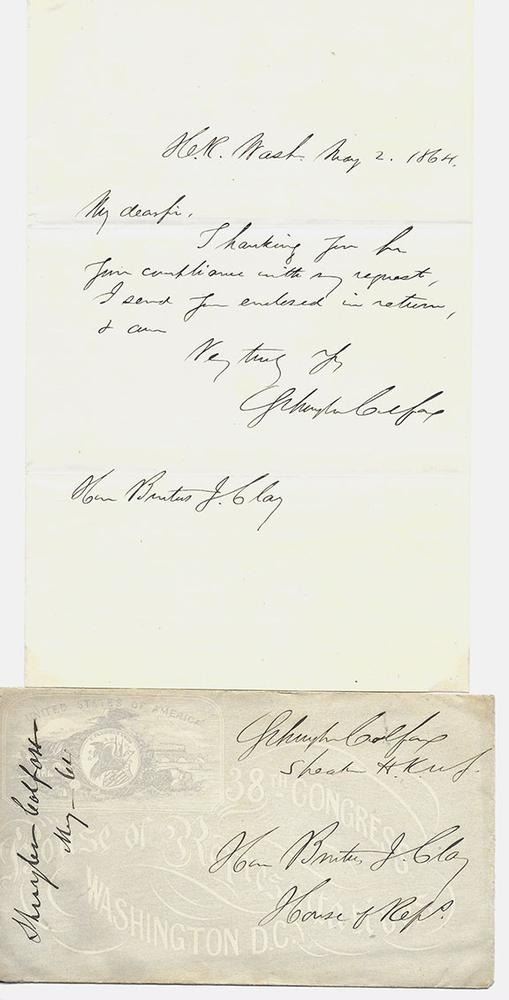 H.R. Wash. May 2. 1864.
My dear sir,
Thanking you for
your compliance with my request,
I send you enclosed in return,
& am
Very truly yrs
Schuyler Colfax
Hon Brutus J. Clay
UNITED STATES OF AMERICA
38TH CONGRESS
House of Representatives
WASHINGTON D.C.
Schuyler Colfax
Speaker H. Reps.
Hon Brutus J. Clay
House of Reps.
Schuyler Colfax